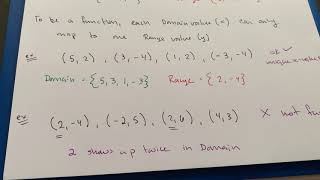 To be a function, each Domain value (x) can only
map to one Range value (y)
ex (5, 2) , (3, -4) , (1, 2) , (-3, -4) ok ✓
Domain = {5, 3, 1, -3} Range = {2, -4}
ex (2, -4) , (-2, 5) , (2, 6) , (4, 3) X not
2 shows up twice in Domain